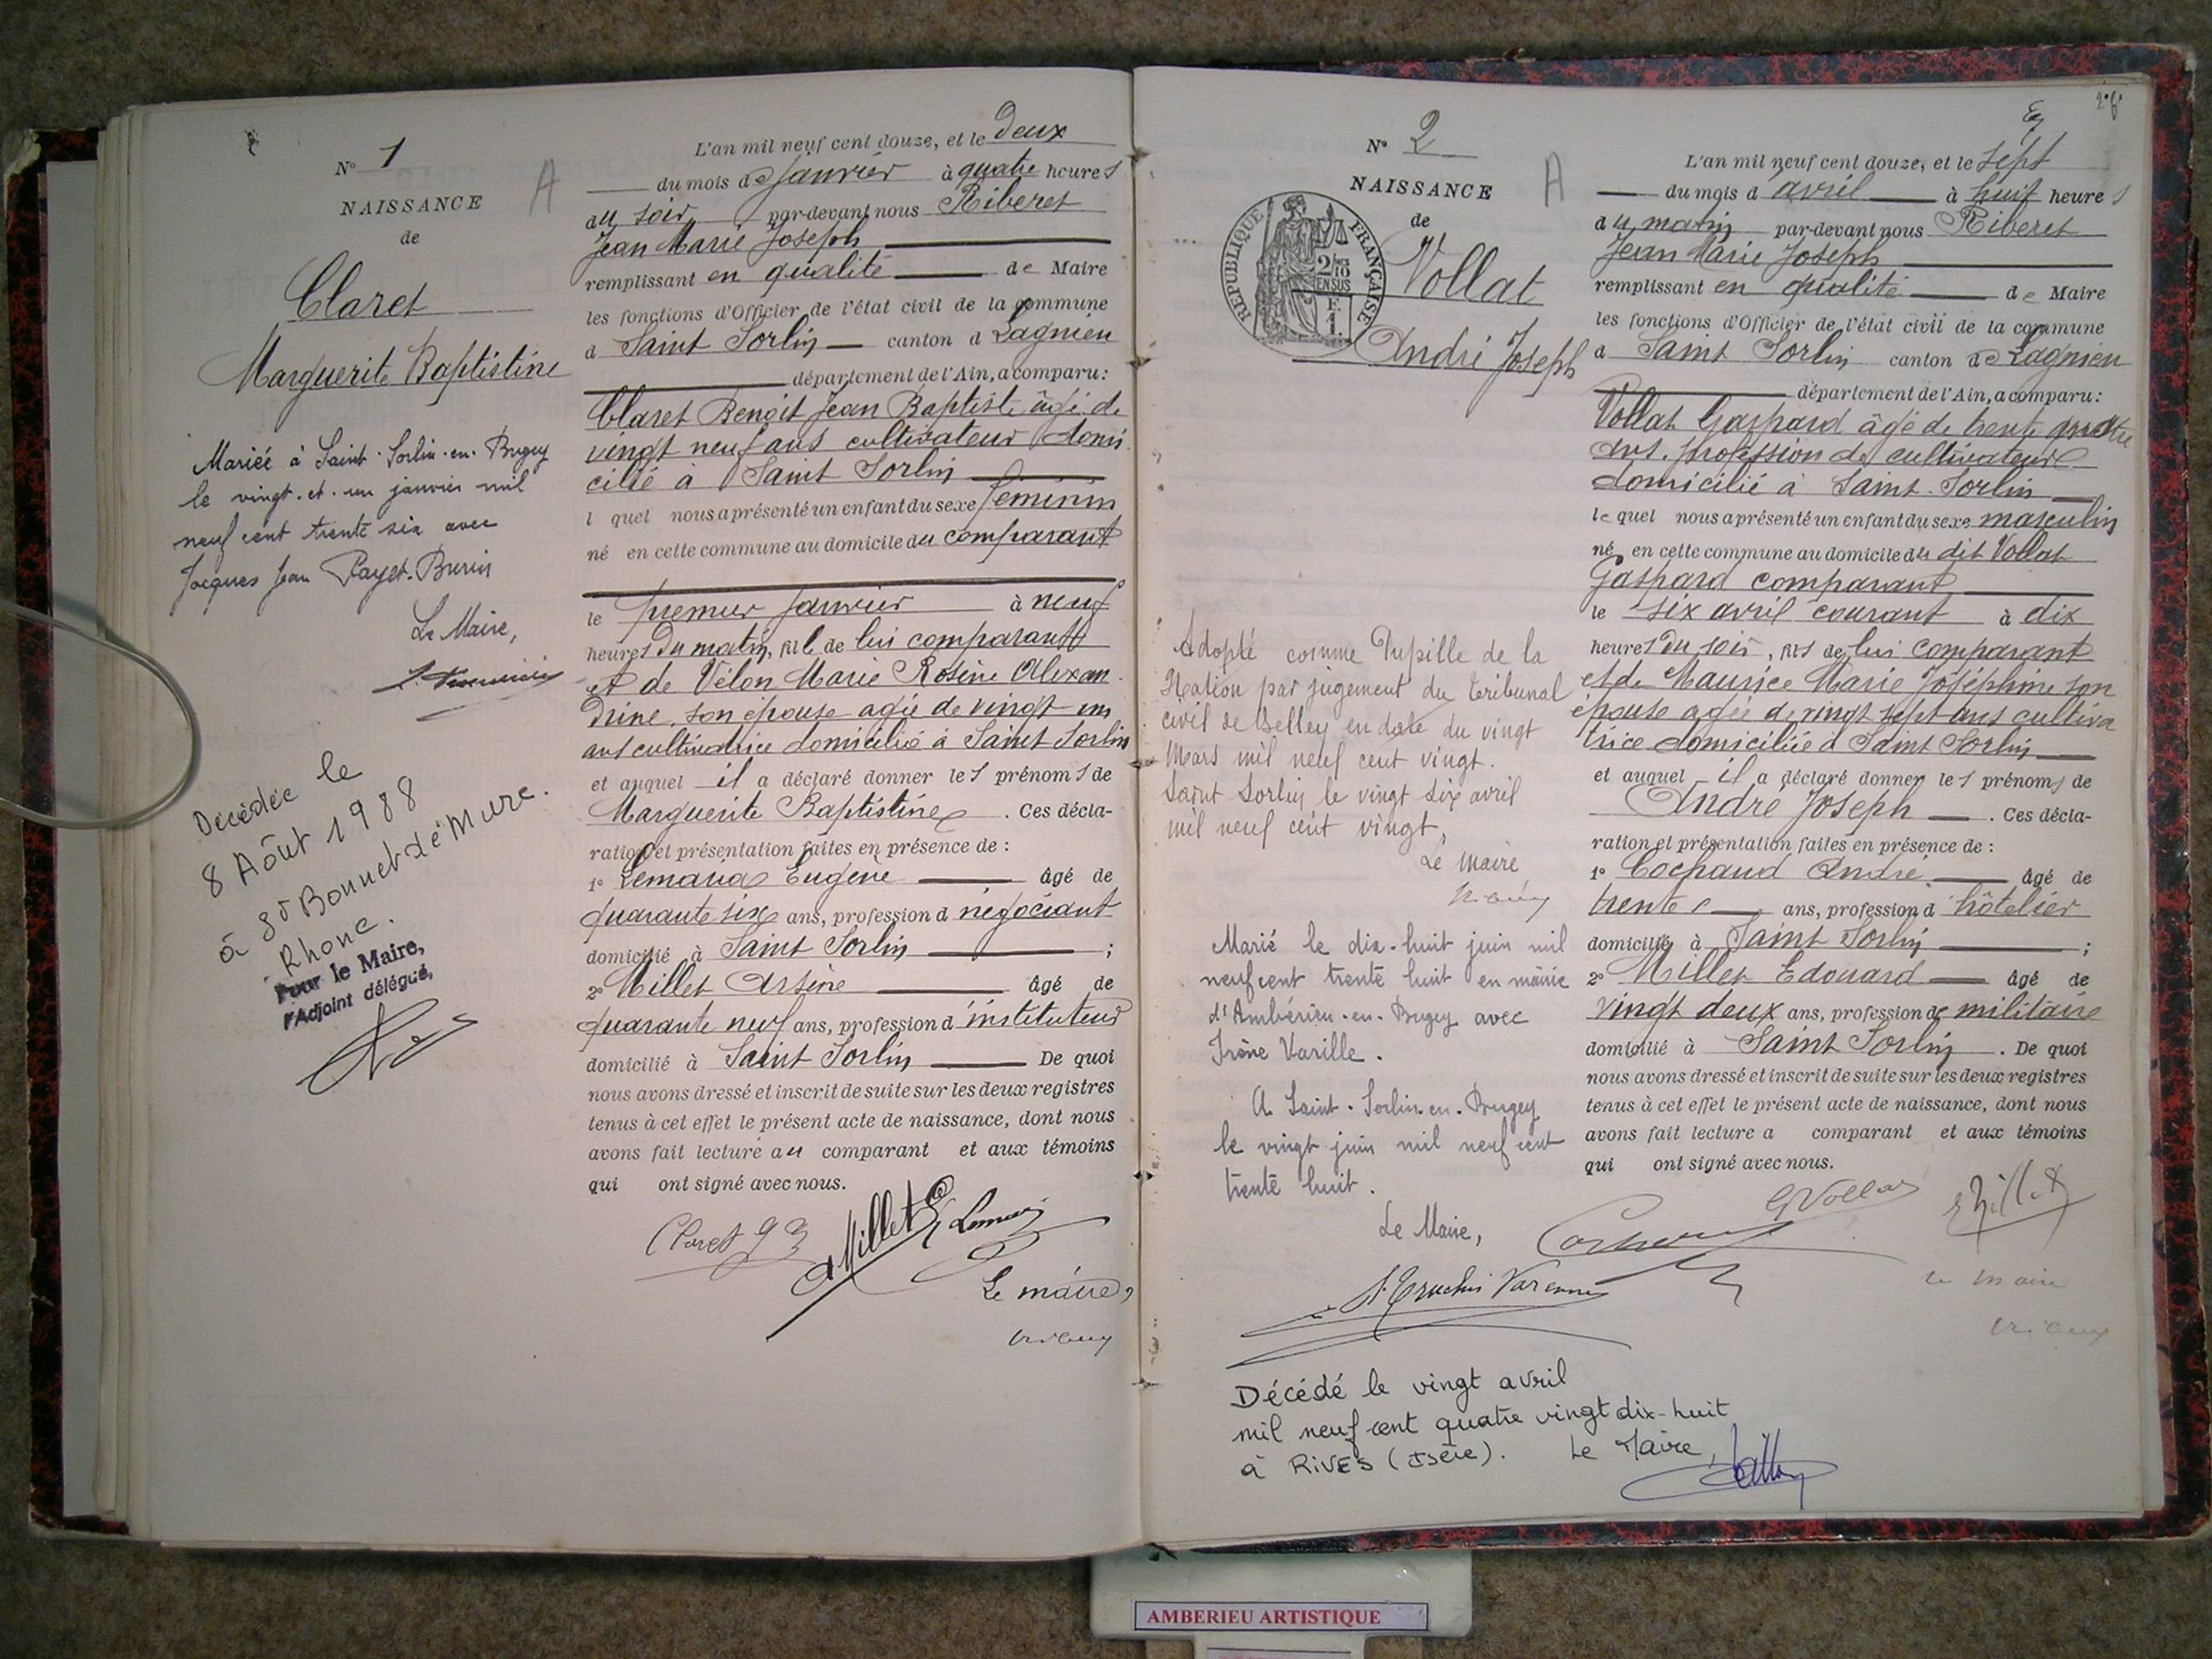 N° 1
NAISSANCE
de
Claret
Marguerite Baptistine
Mariée à Saint-Sorlin-en-Bugey
le vingt-et-un janvier mil
neuf cent trente six avec
Jacques Jean Payet-Burin
Le Maire,
Décédée le
8 Août 1988
à St Bonnet de Mure.
Rhone.
Pour le Maire,
l'Adjoint délégué,
A
L'an mil neuf cent douze, et le Deux
du mois de Janvier à quatre heures
du soir par-devant nous Riberet
Jean Marie Joseph
remplissant en qualité de Maire
les fonctions d'Officier de l'état civil de la commune
d Saint Sorlin canton d Lagnieu
département de l'Ain, a comparu:
Claret Benoit Jean Baptiste âgé de
vingt neuf ans cultivateur domi
cilié à Saint Sorlin
l quel nous a présenté un enfant du sexe féminin
né en cette commune au domicile du comparant
le premier Janvier à neuf
heures du matin, fil de lui comparant
et de Vélon Marie Rosine Alexan
drine, son épouse agée de vingt un
ans cultivatrice domicilié à Saint Sorlin
et auquel il a déclaré donner les prénoms de
Marguerite Baptistine. Ces décla-
ration et présentation faites en présence de :
1° Eugène âgé de
quarante six ans, profession d négociant
domicilié à Saint Sorlin ;
2° Millet Arsène âgé de
quarante neuf ans, profession d'instituteur
domicilié à Saint Sorlin De quoi
nous avons dressé et inscrit de suite sur les deux registres
tenus à cet effet le présent acte de naissance, dont nous
avons fait lecture au comparant et aux témoins
qui ont signé avec nous.
Claret Millet
Le maire,
N° 2
NAISSANCE
de
Vollat
André Joseph
REPUBLIQUE FRANÇAISE
2/10
EN SUS
F.
1.
Adopté comme Pupille de la
Nation par jugement du tribunal
civil de Belley en date du vingt
Mars mil neuf cent vingt.
Saint Sorlin le vingt six avril
mil neuf cent vingt,
Le maire
Marié le dix-huit juin mil
neuf cent trente huit en mairie
d'Ambérieu-en-Bugey avec
Irène Varille.
A Saint-Sorlin-en-Bugey
le vingt juin mil neuf cent
trente huit.
Le Maire,
Décédé le vingt avril
mil neuf cent quatre vingt dix-huit
à RIVES (Isère). Le Maire,
A
L'an mil neuf cent douze, et le Sept
du mois d avril à huit heures
du matin par-devant nous Riberet
Jean Marie Joseph
remplissant en qualité de Maire
les fonctions d'Officier de l'état civil de la commune
d Saint Sorlin canton de Lagnieu
département de l'Ain, a comparu:
Vollat Gaspard âgé de trente quatre
ans. profession de cultivateur
domicilié à Saint-Sorlin
lequel nous a présenté un enfant du sexe masculin
né en cette commune au domicile du dit Vollat
Gaspard comparant
le six avril courant à dix
heures du soir, fils de lui comparant
et de Maurice Marie Joséphine son
épouse agée de vingt sept ans cultiva
trice domiciliée à Saint Sorlin
et auquel il a déclaré donner les prénoms de
André Joseph. Ces décla-
ration et présentation faites en présence de :
1° Cochaud André âgé de
trente ans, profession d hôtelier
domicilié à Saint Sorlin ;
2° Millet Edouard âgé de
vingt deux ans, profession de militaire
domicilié à Saint Sorlin. De quoi
nous avons dressé et inscrit de suite sur les deux registres
tenus à cet effet le présent acte de naissance, dont nous
avons fait lecture a comparant et aux témoins
qui ont signé avec nous.
G Vollat
E Millet
Le Maire
AMBERIEU ARTISTIQUE